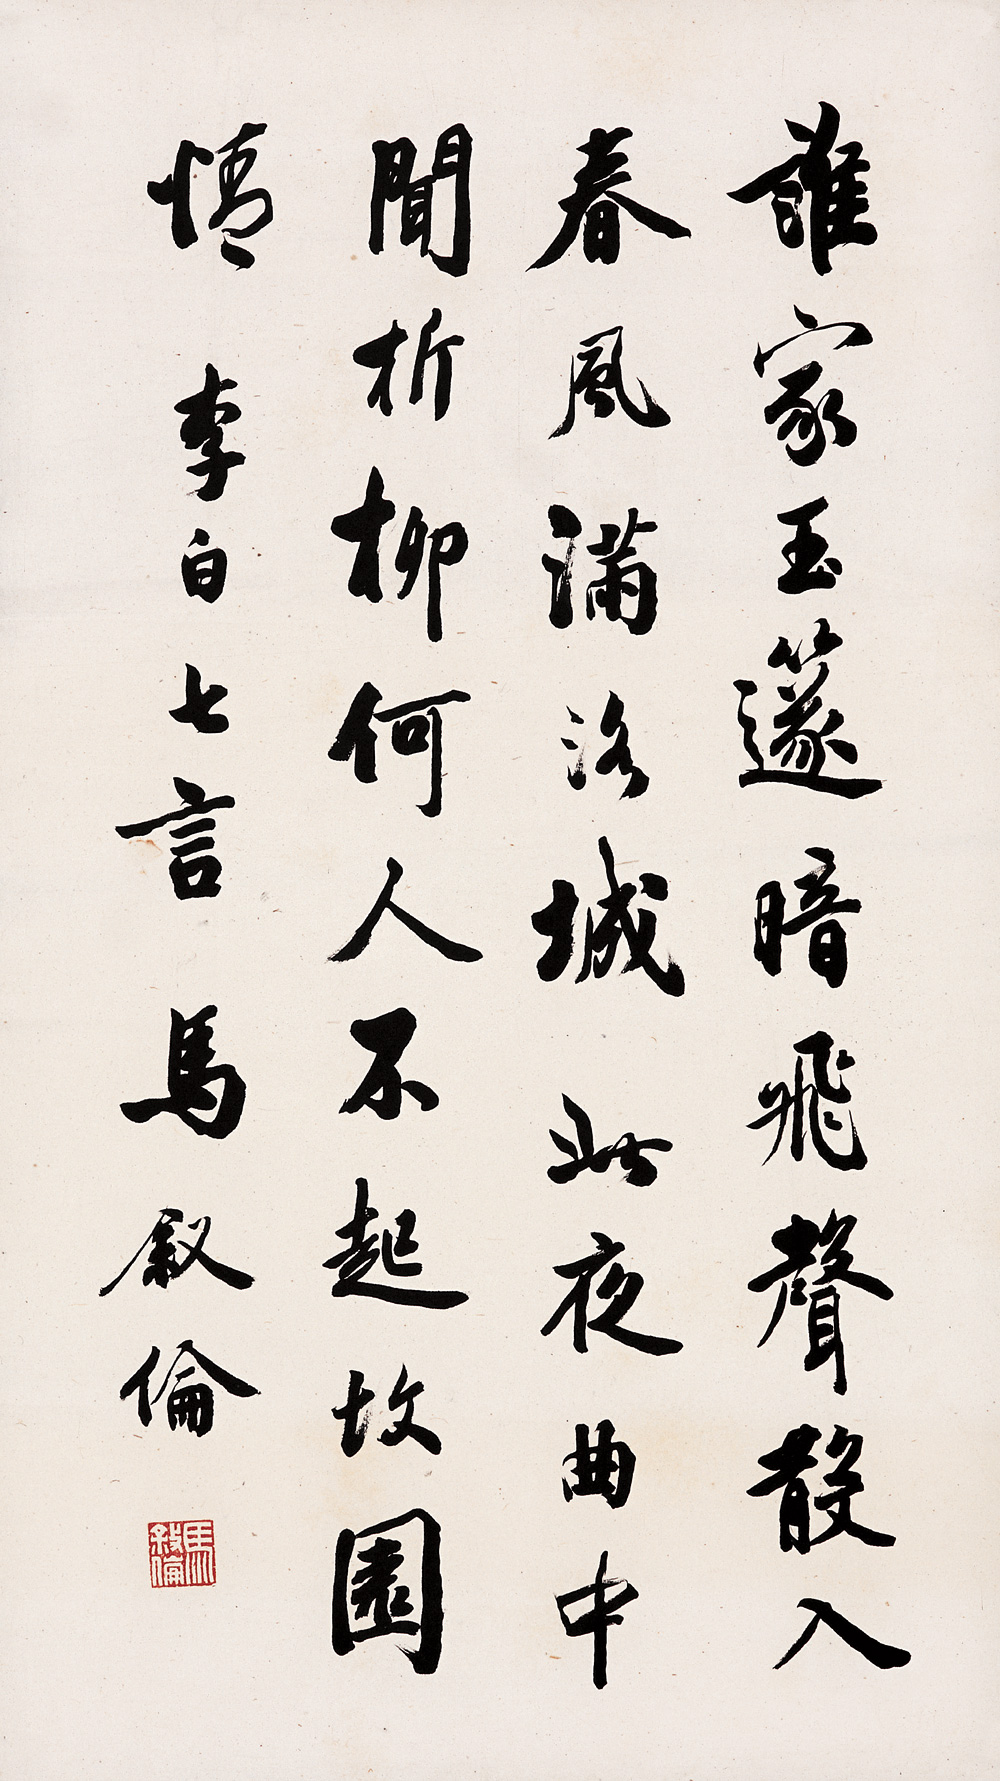 誰家玉篴暗飛聲散入
春風滿洛城此夜曲中
聞折柳何人不起故園
情 李白七言 馬叙倫
馬叙倫